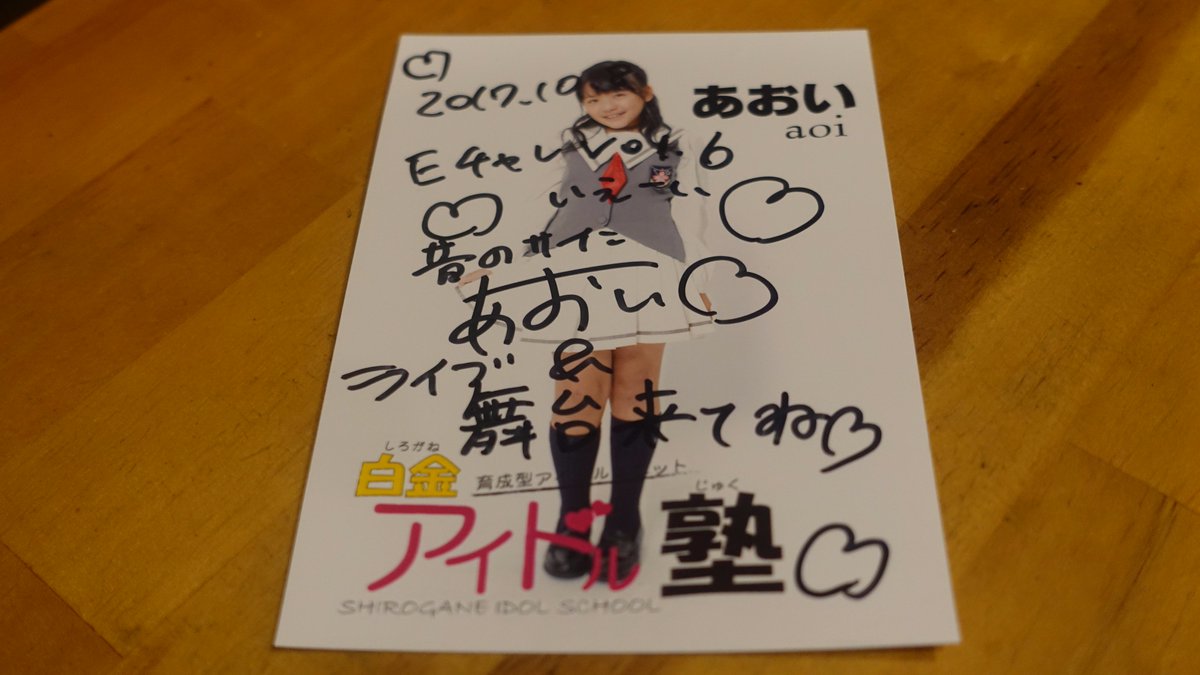 2017.10
あおい
aoi
EチャレVol.6
いえーい
昔のサイン
あおい
ライブ&
舞台来てね
しろがね
白金
育成型アイドルユニット
じゅく
アイドル塾
SHIROGANE IDOL SCHOOL